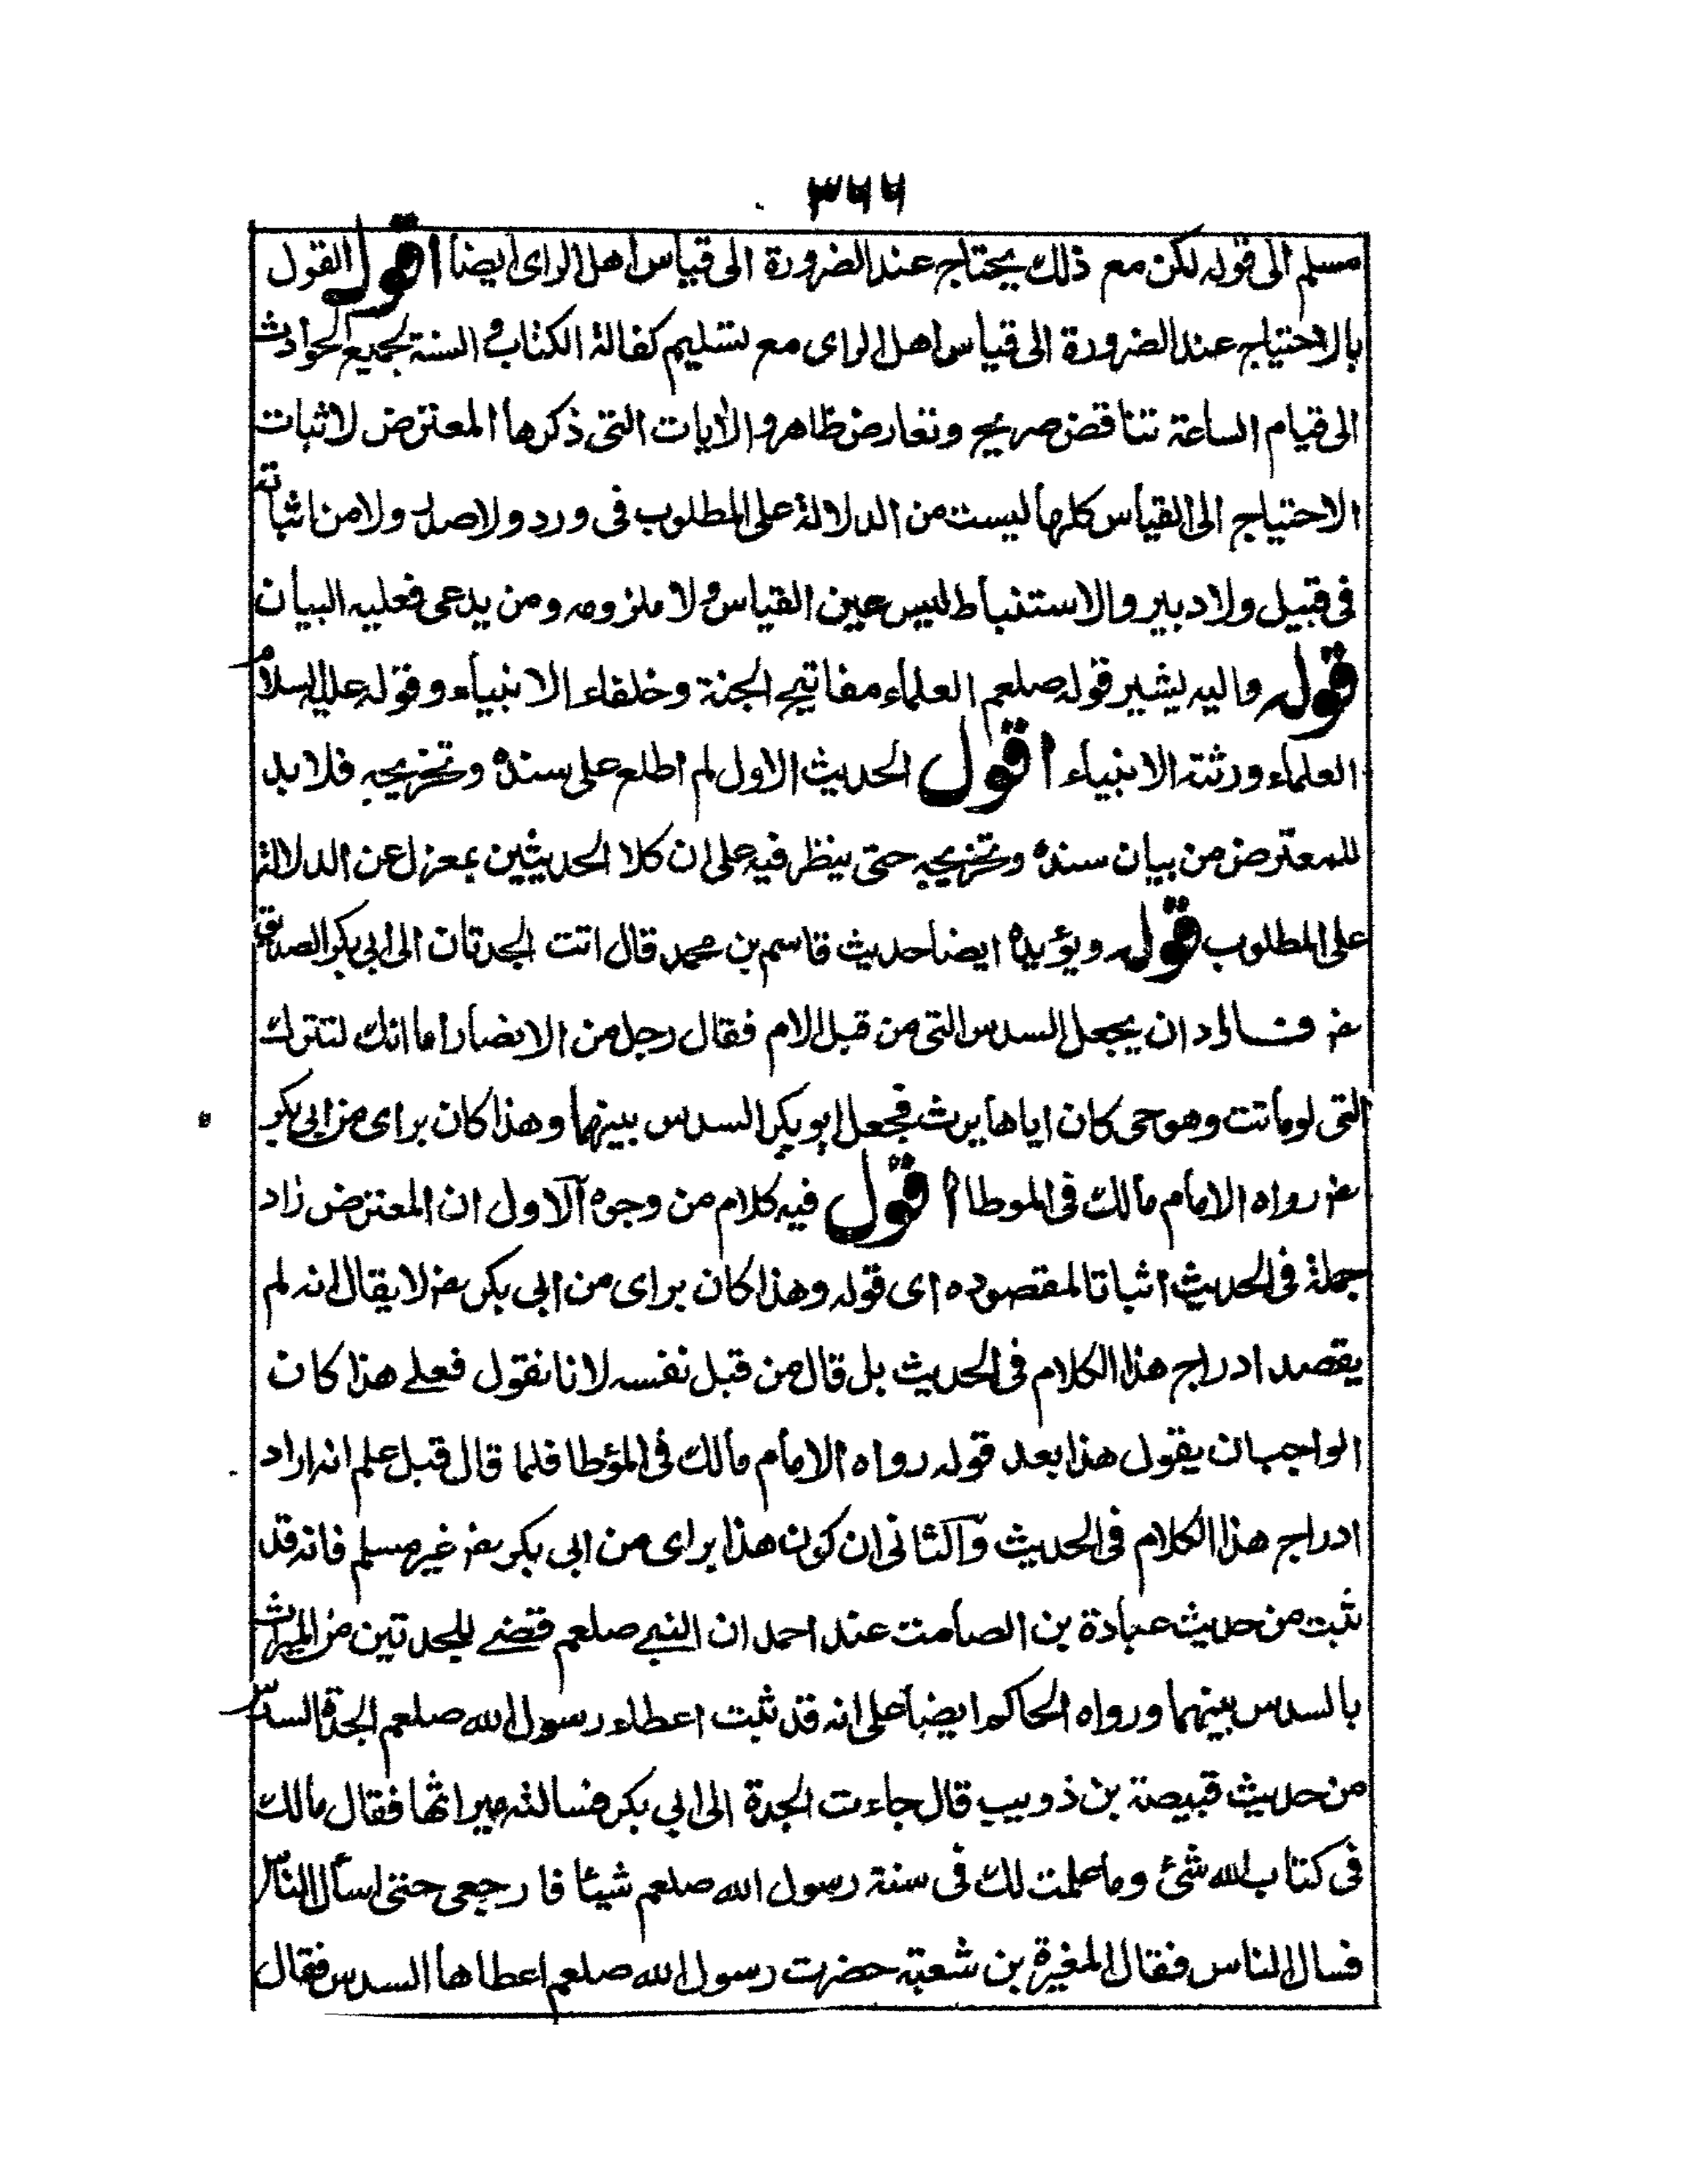 ٣٦٦
مسلم الى قوله لكن مع ذلك يحتاج عند الضرورة الى قياس اهل الراى ايضا اقول القول
بالاحتياج عند الضرورة الى قياس اهل الراى مع تسليم كفالة الكتاب و السنة لجميع الحوادث
الى قيام الساعة تناقض صريح وتعارض ظاهر و الايات التى ذكرها المعترض لاثبات
الاحتياج الى القياس كلها ليست من الدلالة على المطلوب فى ورد ولا صدر ولا من اثباته
فى قبيل ولا دبير والاستنباط ليس عين القياس ولا ملزومه ومن يدعى فعليه البيان
قوله واليه يشير قوله صلعم العلماء مفاتيح الجنة وخلفاء الانبياء وقوله عليه السلام
العلماء ورثة الانبياء اقول الحديث الاول لم اطلع على سنده وتخريجه فلا بد
للمعترض من بيان سنده وتخريجه حتى ينظر فيه على ان كلا الحديثين بمعزل عن الدلالة
على المطلوب قوله ويؤيده ايضا حديث قاسم بن محمد قال اتت الجدتان الى ابى بكر الصديق
رضـ فـاراد ان يجعل السدس التى من قبل الام فقال رجل من الانصار اما انك لتترك
التى لو ماتت وهو حى كان اياها يرث فجعل ابو بكر السدس بينهما وهذا كان براى من ابى بكر
رضـ رواه الامام مالك فى الموطا اقول فيه كلام من وجوه الاول ان المعترض زاد
جملة فى الحديث اثباتا لمقصوده اى قوله وهذا كان براى من ابى بكر رضـ لا يقال انه لم
يقصد ادراج هذا الكلام فى الحديث بل قال من قبل نفسه لانا نقول فعلے هذا كان
الواجب ان يقول هذا بعد قوله رواه الامام مالك فى المؤطا فلما قال قبل علم انه اراد
ادراج هذا الكلام فى الحديث والثانى ان كون هذا براى من ابى بكر رضـ غير مسلم فانه قد
ثبت من حديث عبادة بن الصامت عند احمد ان النبے صلعم قضے للجدتين من الميراث
بالسدس بينهما ورواه الحاكم ايضا على انه قد ثبت اعطاء رسول الله صلعم الجدة السدس
من حديث قبيصة بن ذويب قال جاءت الجدة الى ابى بكر فسالته ميراثها فقال مالك
فى كتاب الله شئ وما علمت لك فى سنة رسول الله صلعم شيئا فارجعى حتى اسأل الناس
فسال الناس فقال المغيرة بن شعبة حضرت رسول الله صلعم اعطاها السدس فقال